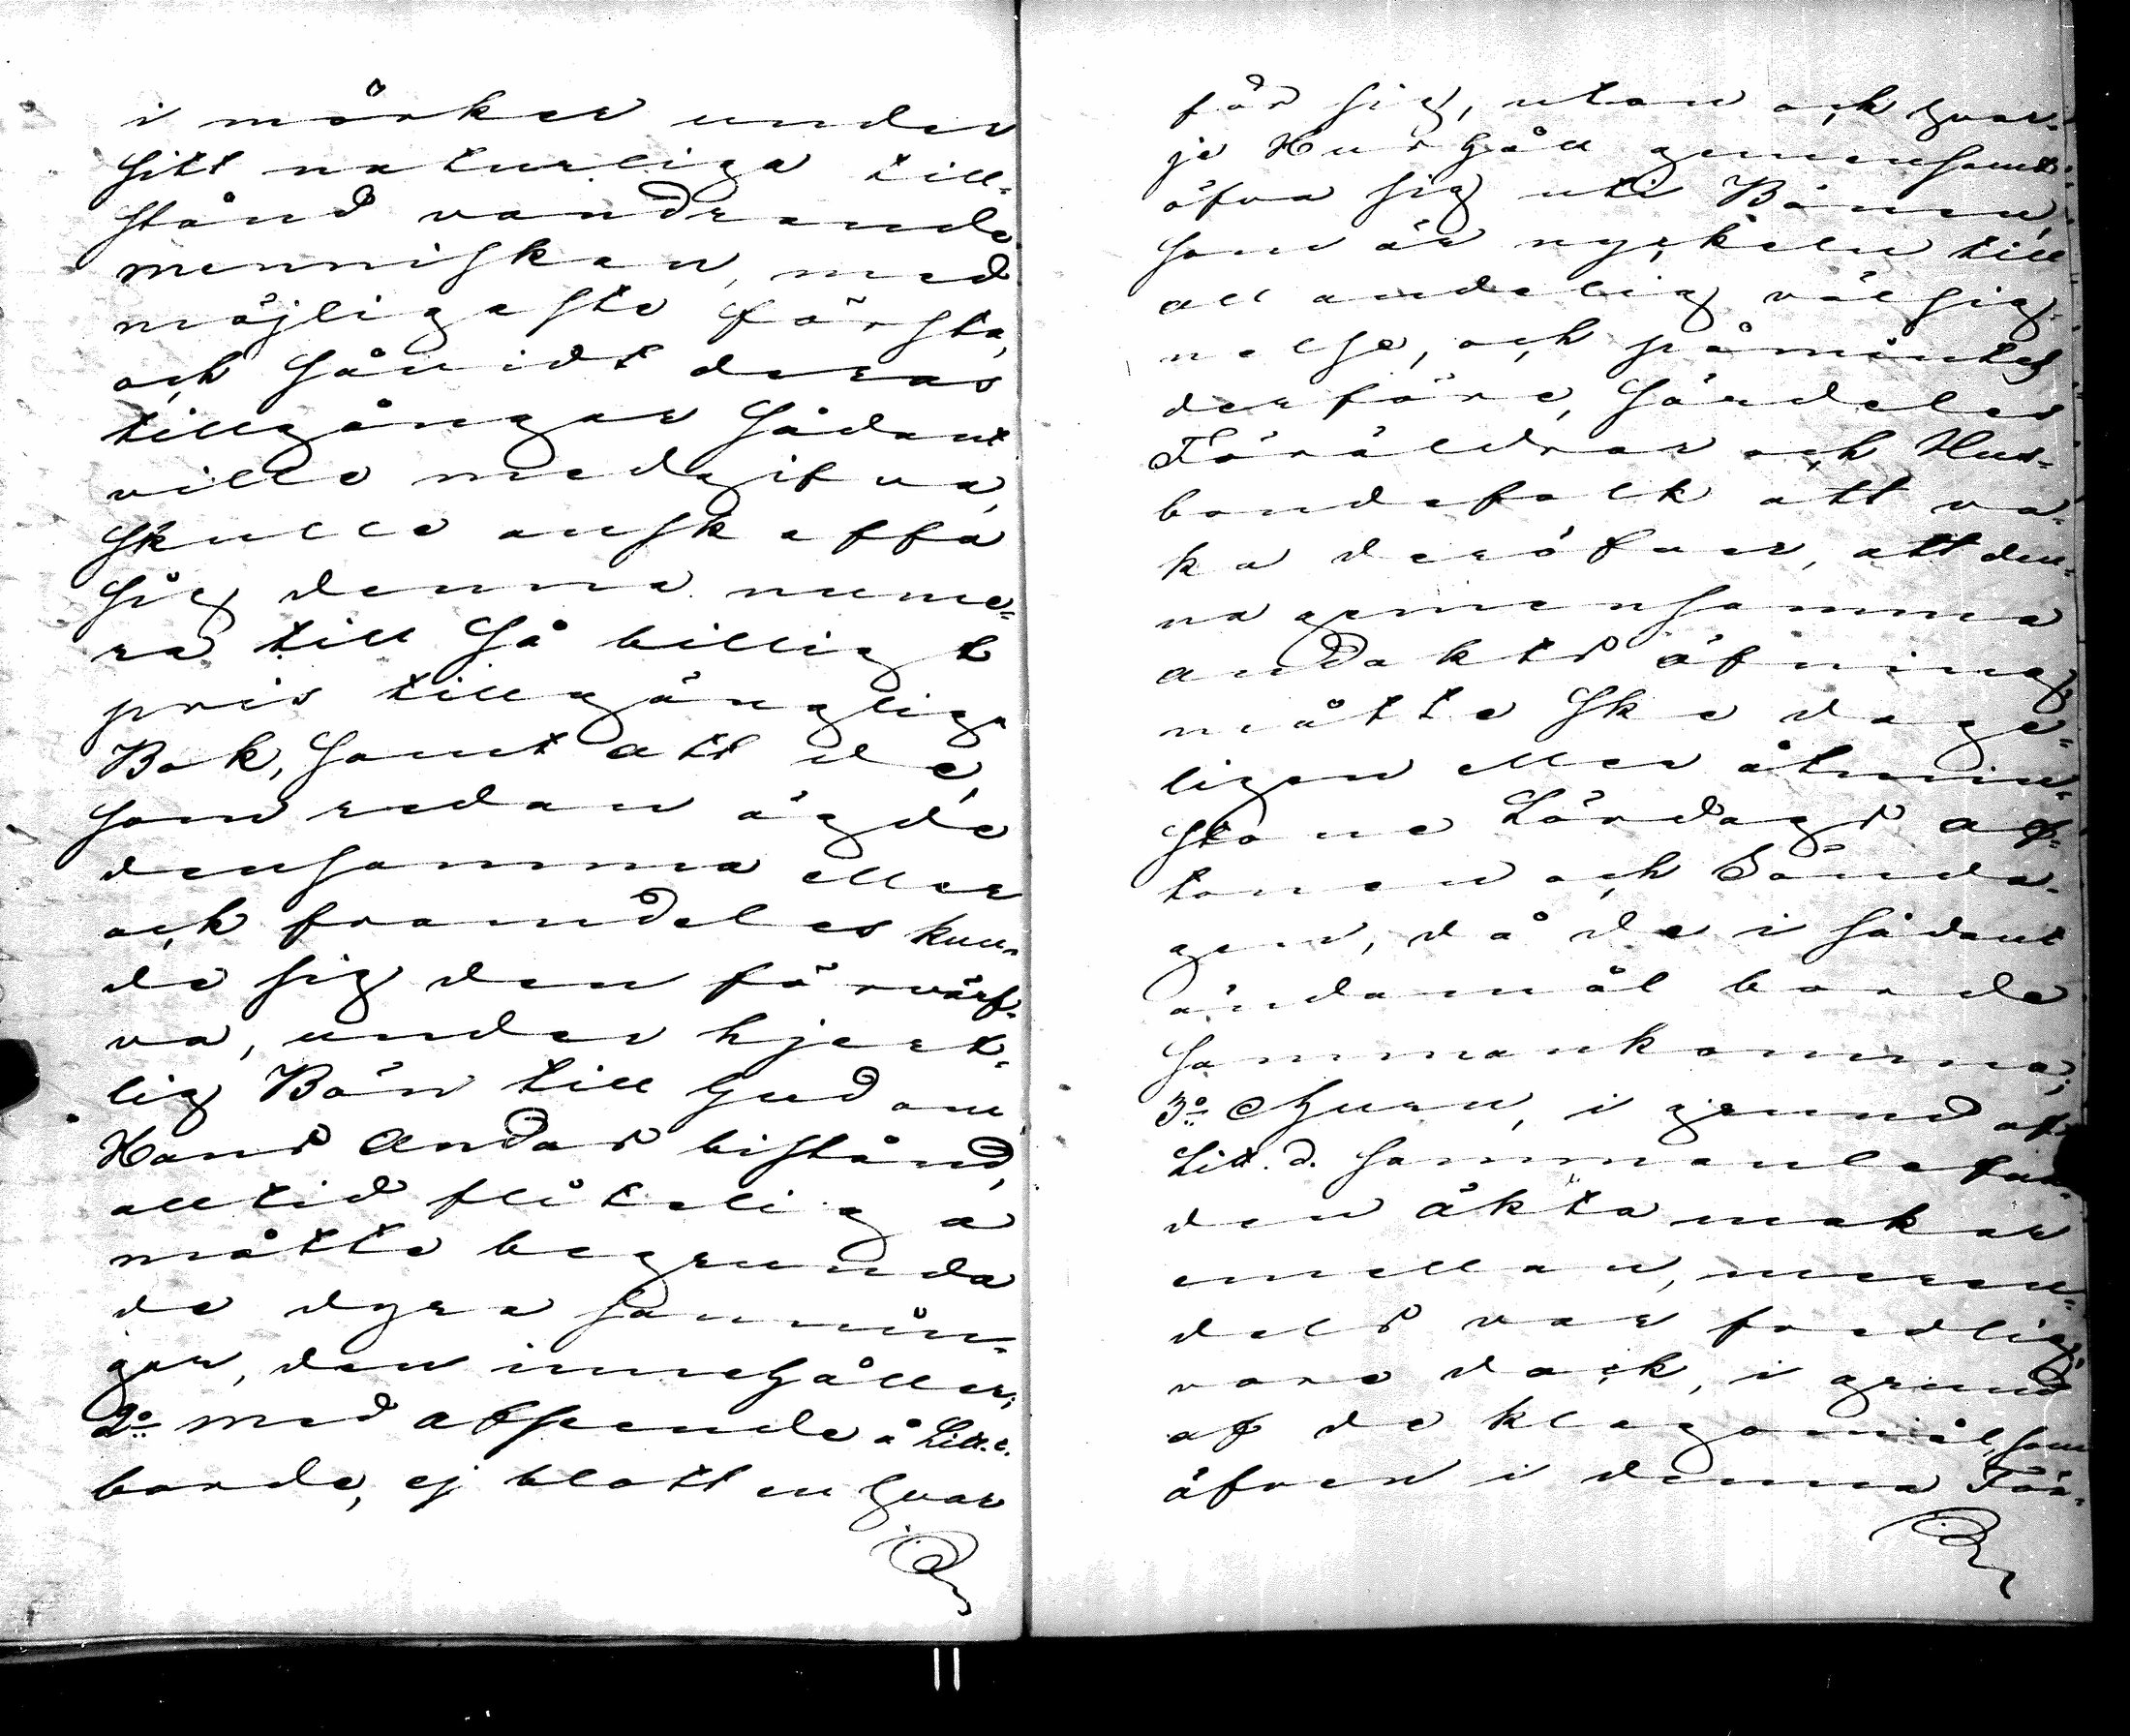 i mörker under
sitt naturliga till-
stånd vandrande
menniskan, med
möjligaste första,
och såvidt deras
tillgångar sådant
ville medgifva,
skulle anskaffa
sig denna nume-
ra till så billigt
pris tillgänglig
Bok, samt att de,
som redan ägde
densamma eller
ock framdeles kun-
de sig den förvärf-
va, under hjert-
lig Bön till Gud om
Hans Andas bistånd,
alltid fliteliga
måtte begrunda
de dyra sannin-
gar, den innehåller;
2:o med afseende å Litt. c.
borde, ej blott en hvar
för sig, utan ock hvar-
je Hushåll gemensamt
öfva sig uti Bönen,
som är nyckeln till
all andelig välsig-
nelse, och påmintes
derföre, särdeles
Föräldrar och Hus-
bondefolk att va-
ka deröfver, att den-
na gemensamma
andakts öfning
måtte ske dage-
ligen eller åtmin-
stone Lördags af-
tonen och Sönda-
gen, då de i sådant
ändamål borde
sammankomma;
3:o Ehuru, i grund af
Litt. d. sammanlefna-
den äkta makar
emellan, meren-
dels var fredlig,
vore dock, i grund
af de klagomål, som
äfven i denna För-